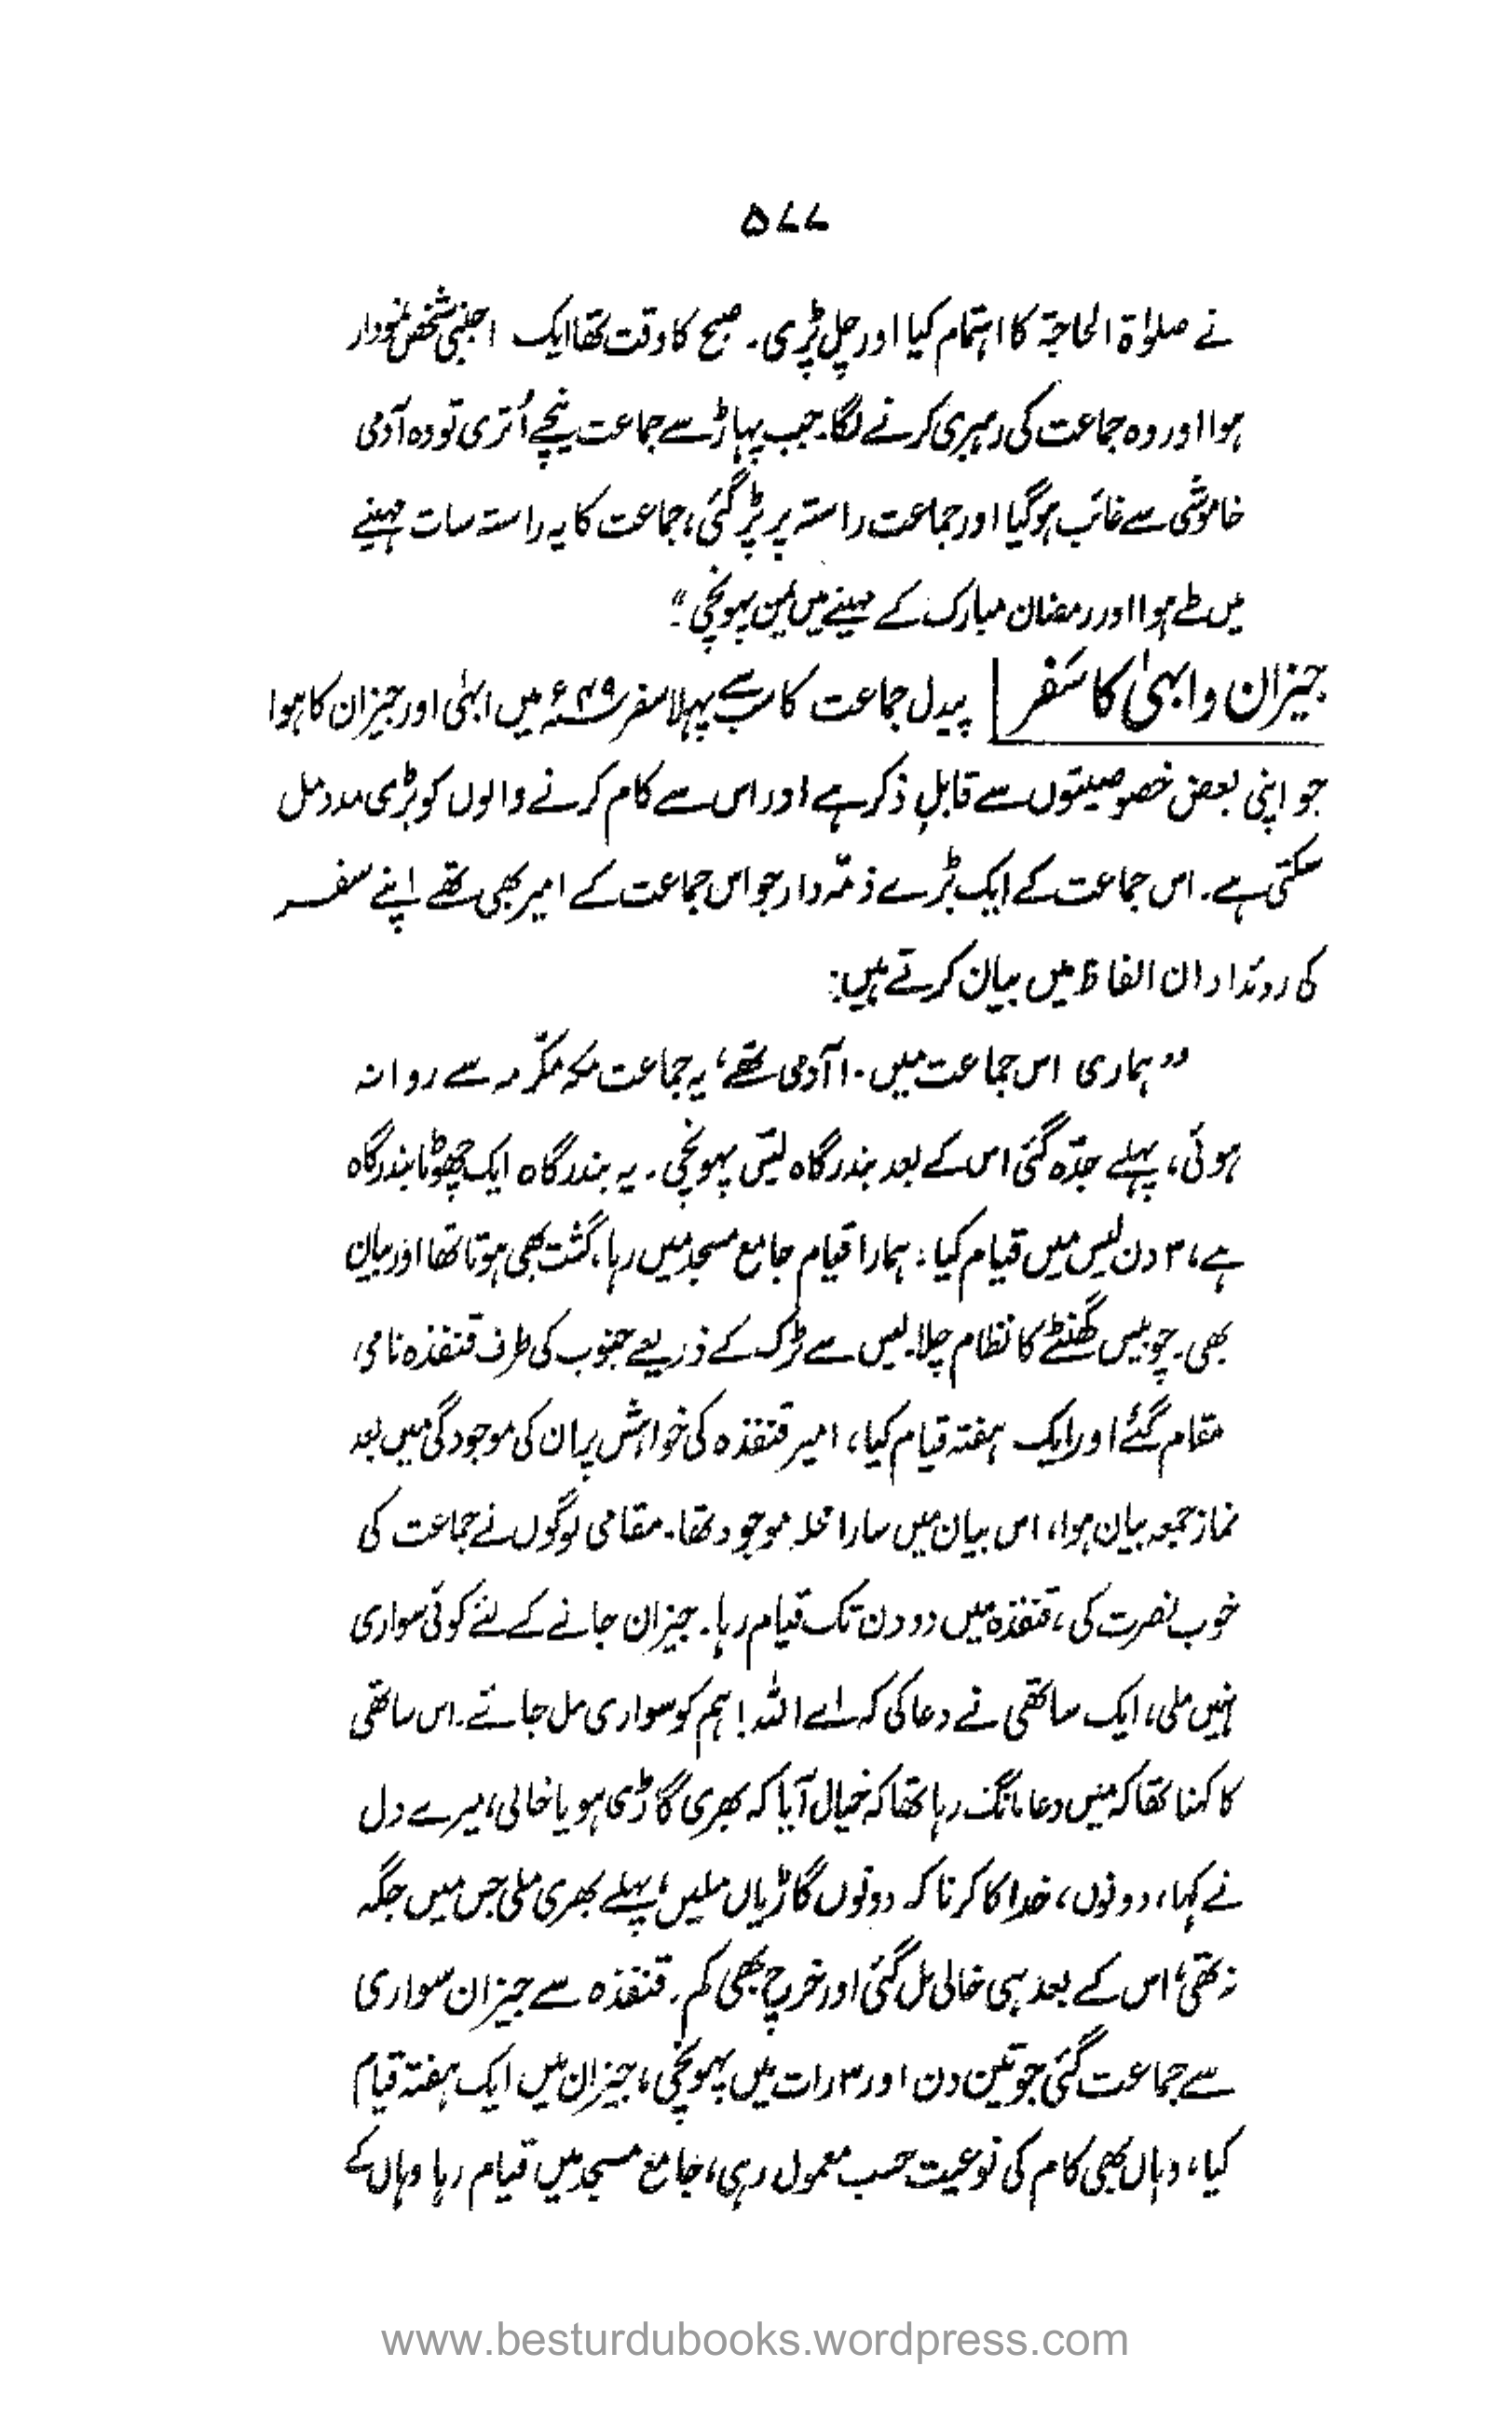 ۵۷۷
نے صلوٰۃ الحاجۃ کا اہتمام کیا اور چل پڑی۔ صبح کا وقت تھا ایک اجنبی شخص نمودار
ہوا اور وہ جماعت کی رہبری کرنے لگا۔ جب پہاڑ سے جماعت نیچے اُتری تو وہ آدمی
خاموشی سے غائب ہوگیا اور جماعت راستہ پر پڑ گئی، جماعت کا یہ راستہ سات مہینے
میں طے ہوا اور رمضان مبارک کے مہینے میں یمن پہونچی۔"
جیزان و ابہیٰ کا سفر پیدل جماعت کا سب سے پہلا سفر ۴۹ء میں ابہیٰ اور جیزان کا ہوا
جو اپنی بعض خصوصیتوں سے قابلِ ذکر ہے اور اس سے کام کرنے والوں کو بڑی مدد مل
سکتی ہے۔ اس جماعت کے ایک بڑے ذمّہ دار جو اس جماعت کے امیر بھی تھے اپنے سفر
کا روئداد ان الفاظ میں بیان کرتے ہیں:
"ہماری اس جماعت میں ۱۰ آدمی تھے، یہ جماعت مکہ مکرّمہ سے روانہ
ہوئی، پہلے جدّہ گئی اس کے بعد بندرگاہ لیس پہونچی۔ یہ بندرگاہ ایک چھوٹا بندرگاہ
ہے، ۳ دن لیس میں قیام کیا، ہمارا قیام جامع مسجد میں رہا، گشت بھی ہوتا تھا اور بیان
بھی۔ چوبیس گھنٹے کا نظام چلا۔ لیس سے ٹرک کے ذریعے جنوب کی طرف قنفذہ نامی
مقام گئے اور ایک ہفتہ قیام کیا، امیر قنفذہ کی خواہش پر ان کی موجودگی میں بعد
نماز جمعہ بیان ہوا، اس بیان میں سارا محلہ موجود تھا۔ مقامی لوگوں نے جماعت کی
خوب نصرت کی، قنفذہ میں دو دن تک قیام رہا۔ جیزان جانے کے لئے کوئی سواری
نہیں ملی، ایک ساتھی نے دعا کی کہ اے اللہ! ہم کو سواری مل جائے۔ اس ساتھی
کا کہنا تھا کہ میں دعا مانگ رہا تھا کہ خیال آیا کہ بھری گاڑی ہو یا خالی، میرے دل
نے کہا، دونوں، خدا کا کرنا کہ دونوں گاڑیاں ملیں، پہلے بھری ملی جس میں جگہ
نہ تھی، اس کے بعد ہی خالی مل گئی اور خرچ بھی کم۔ قنفذہ سے جیزان سواری
سے جماعت گئی جو تین دن اور ۳ رات میں پہونچی، جیزان میں ایک ہفتہ قیام
کیا، وہاں بھی کام کی نوعیت حسب معمول رہی، جامع مسجد میں قیام رہا وہاں کے
www.besturdubooks.wordpress.com